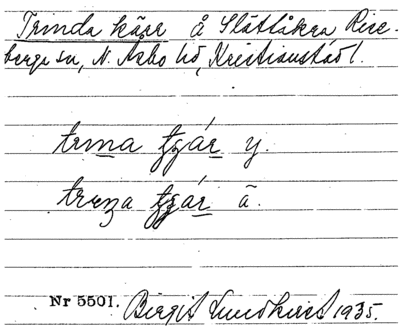 Trinda kärr å Slättåkra Rise-
berga sn, N. Åsbo hd, Kristianstads l.
trına y.
ā.
Nr 5501. Birgit Lundkvist 1935.